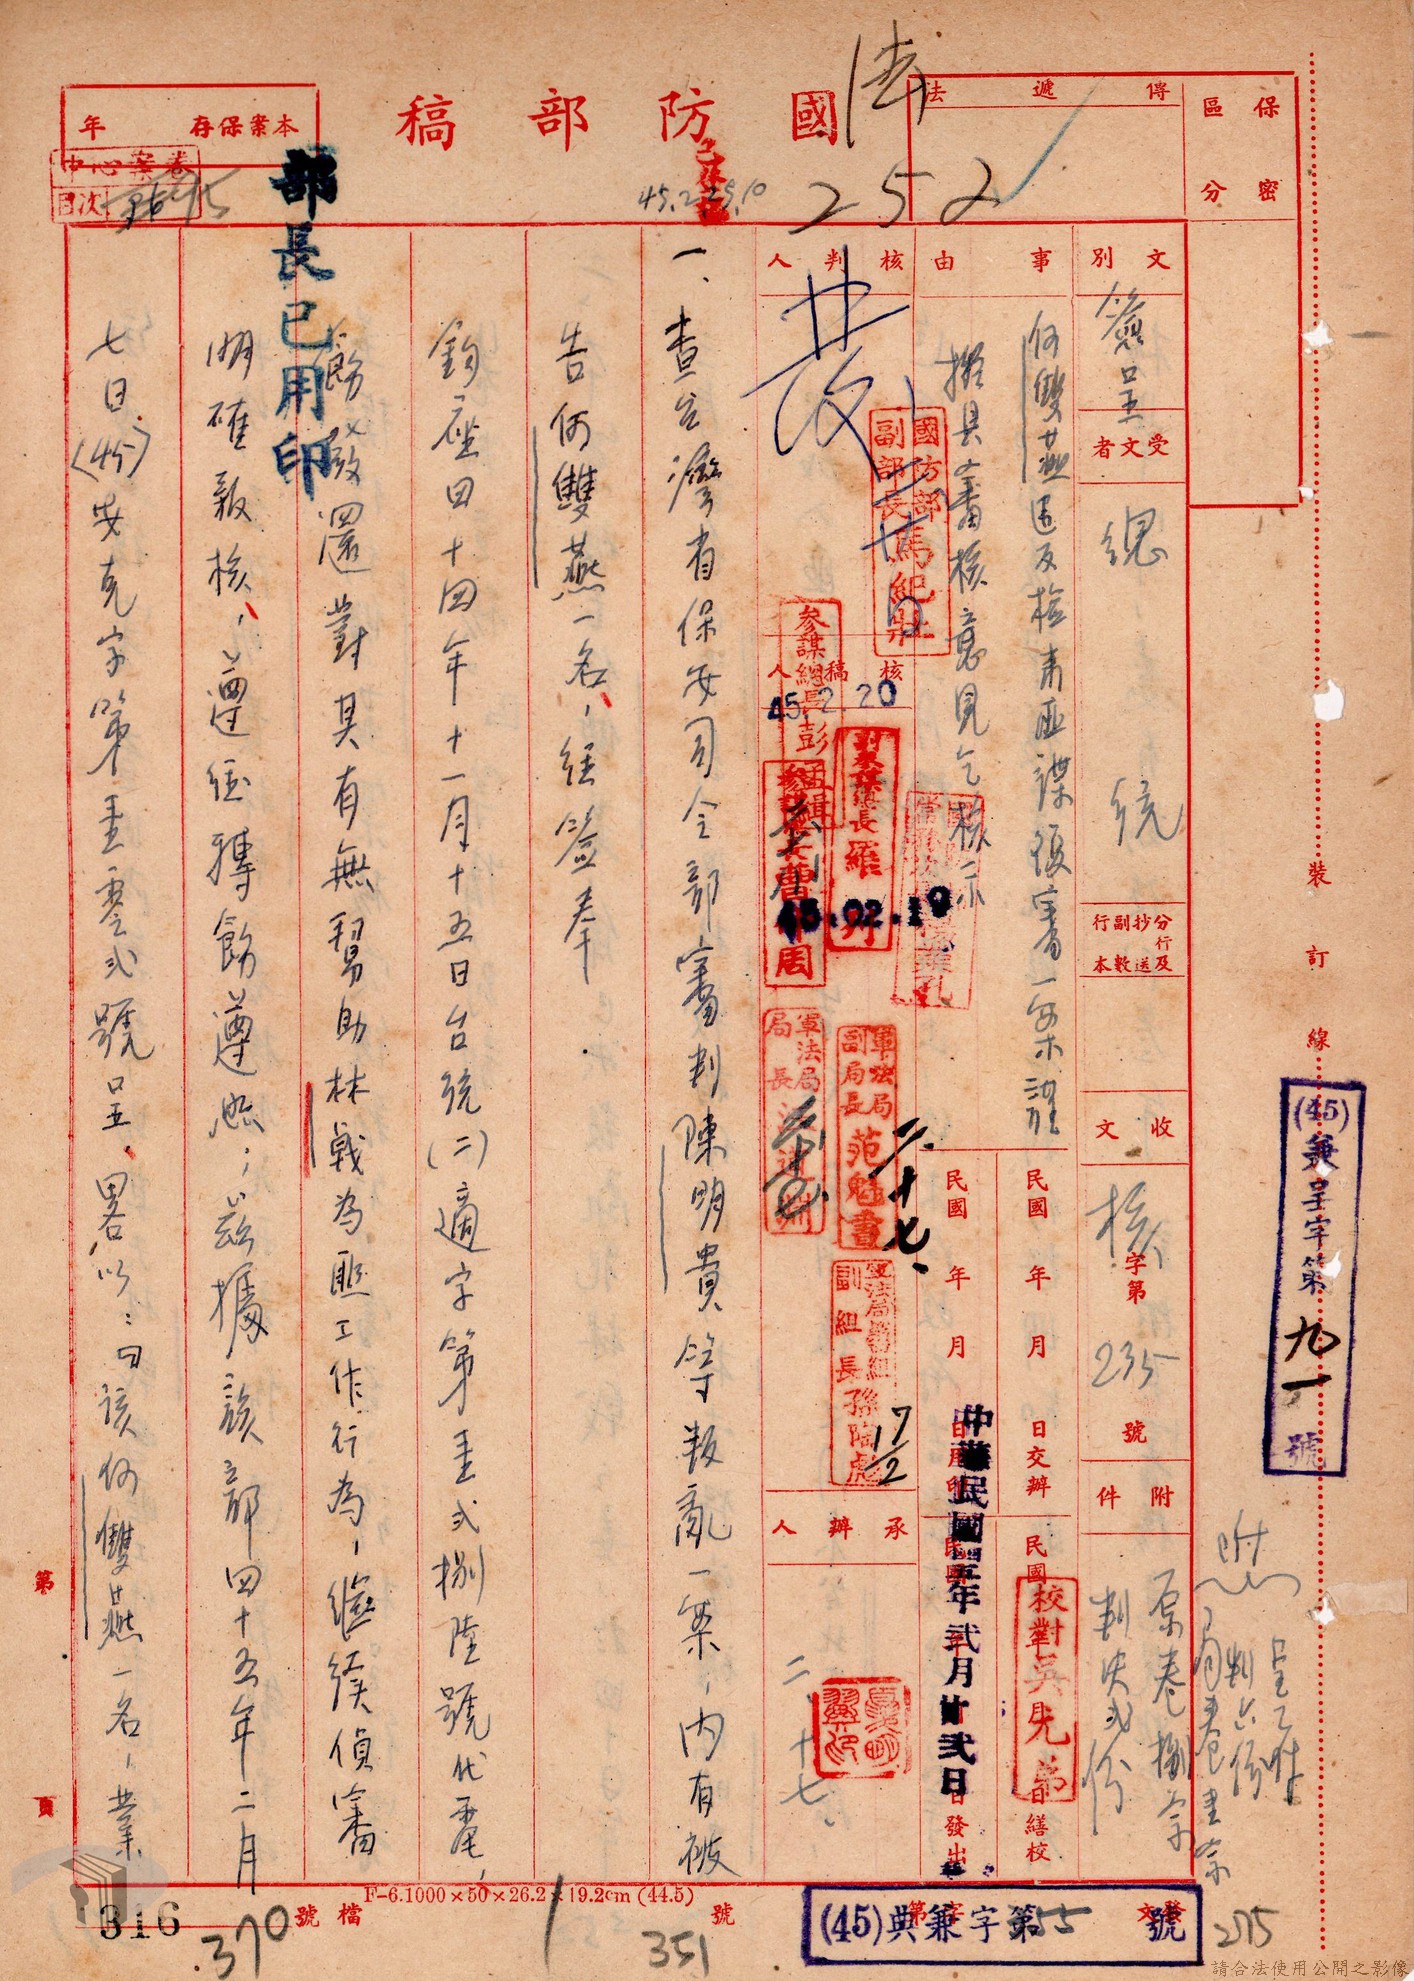 保密
區分
傳遞法
國防部稿
本案保存 年
中心案卷
目次
部長已用印
252
45.2.25.10
文別
簽呈
受文者
總統
分行及抄送副本數行
收文
核字第235號
附件
原卷捌宗
判決弍份
事由
何雙燕違反檢肅匪諜復審一案謹
擬具審核意見乞核示
民國 年 月 日交辦
民國 年 月 日繕校
校對吳見弟
民國 年 月
中華民國四五年弍月廿弍日
發出
核判人
國防部副部長馬紀壯
參謀總長彭孟緝
核稿人
45.2.20
副參謀總長羅列
45.02.19
軍法局局長
軍法局副局長范魁書
二、十七、
副組長孫陶彪
17/2
承辦人
二、十七、
一、查台灣省保安司令部審判陳明貴等叛亂一案，內有被
告何雙燕一名，經簽奉
鈞座四十四年十一月十五日台統(二)適字第壬弍捌陸號代電，
飭發還對其有無幫助林戟為匪工作行為，繼續偵審
明確報核，遵經轉飭遵照；茲據該部四十五年二月
七日(45)安克字第壬零弍號呈，畧以：曰該何雙燕一名，業
裝訂線
(45)兼呈字第九一號
附
呈乙件
判六份
局卷壹宗
第 頁
316
370
檔號
F-6.1000×50×26.2×19.2cm (44.5)
351
號
發文
(45)典兼字第55號
275
請合法使用公開之影像